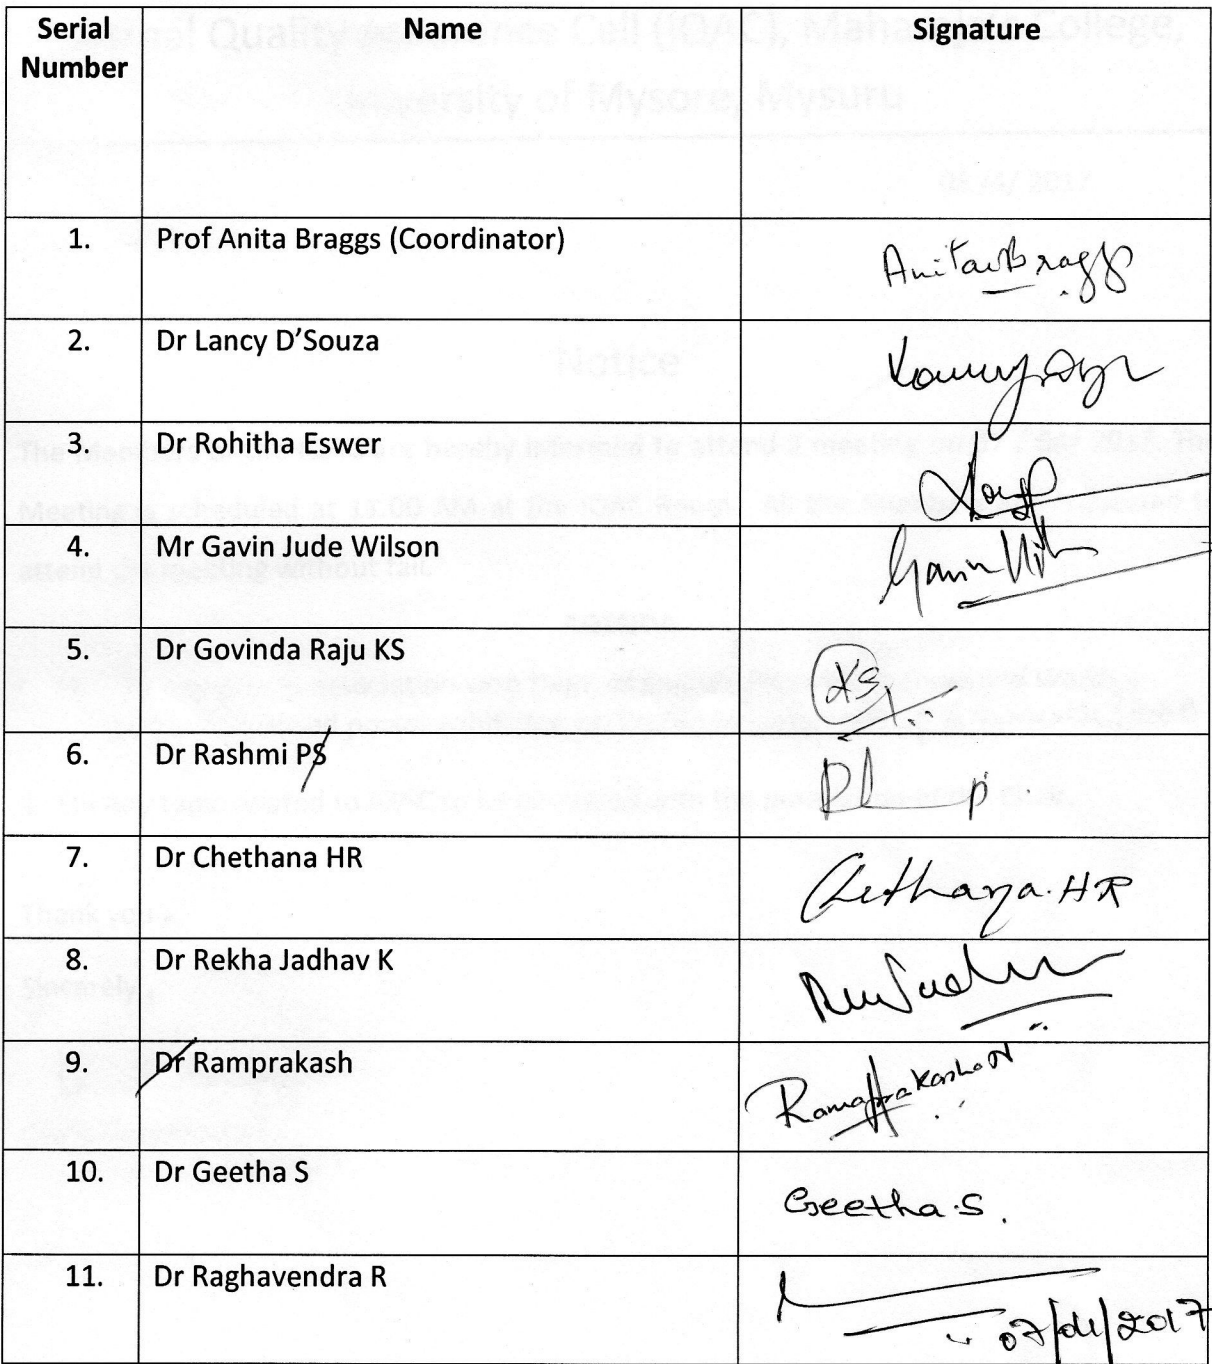 Serial Number Name Signature
1. Prof Anita Braggs (Coordinator) Anita Braggs
2. Dr Lancy D'Souza
3. Dr Rohitha Eswer
4. Mr Gavin Jude Wilson Gavin
5. Dr Govinda Raju KS KS
6. Dr Rashmi PS
7. Dr Chethana HR Chethana.HR
8. Dr Rekha Jadhav K
9. Dr Ramprakash
10. Dr Geetha S Geetha.S.
11. Dr Raghavendra R
07/04/2017